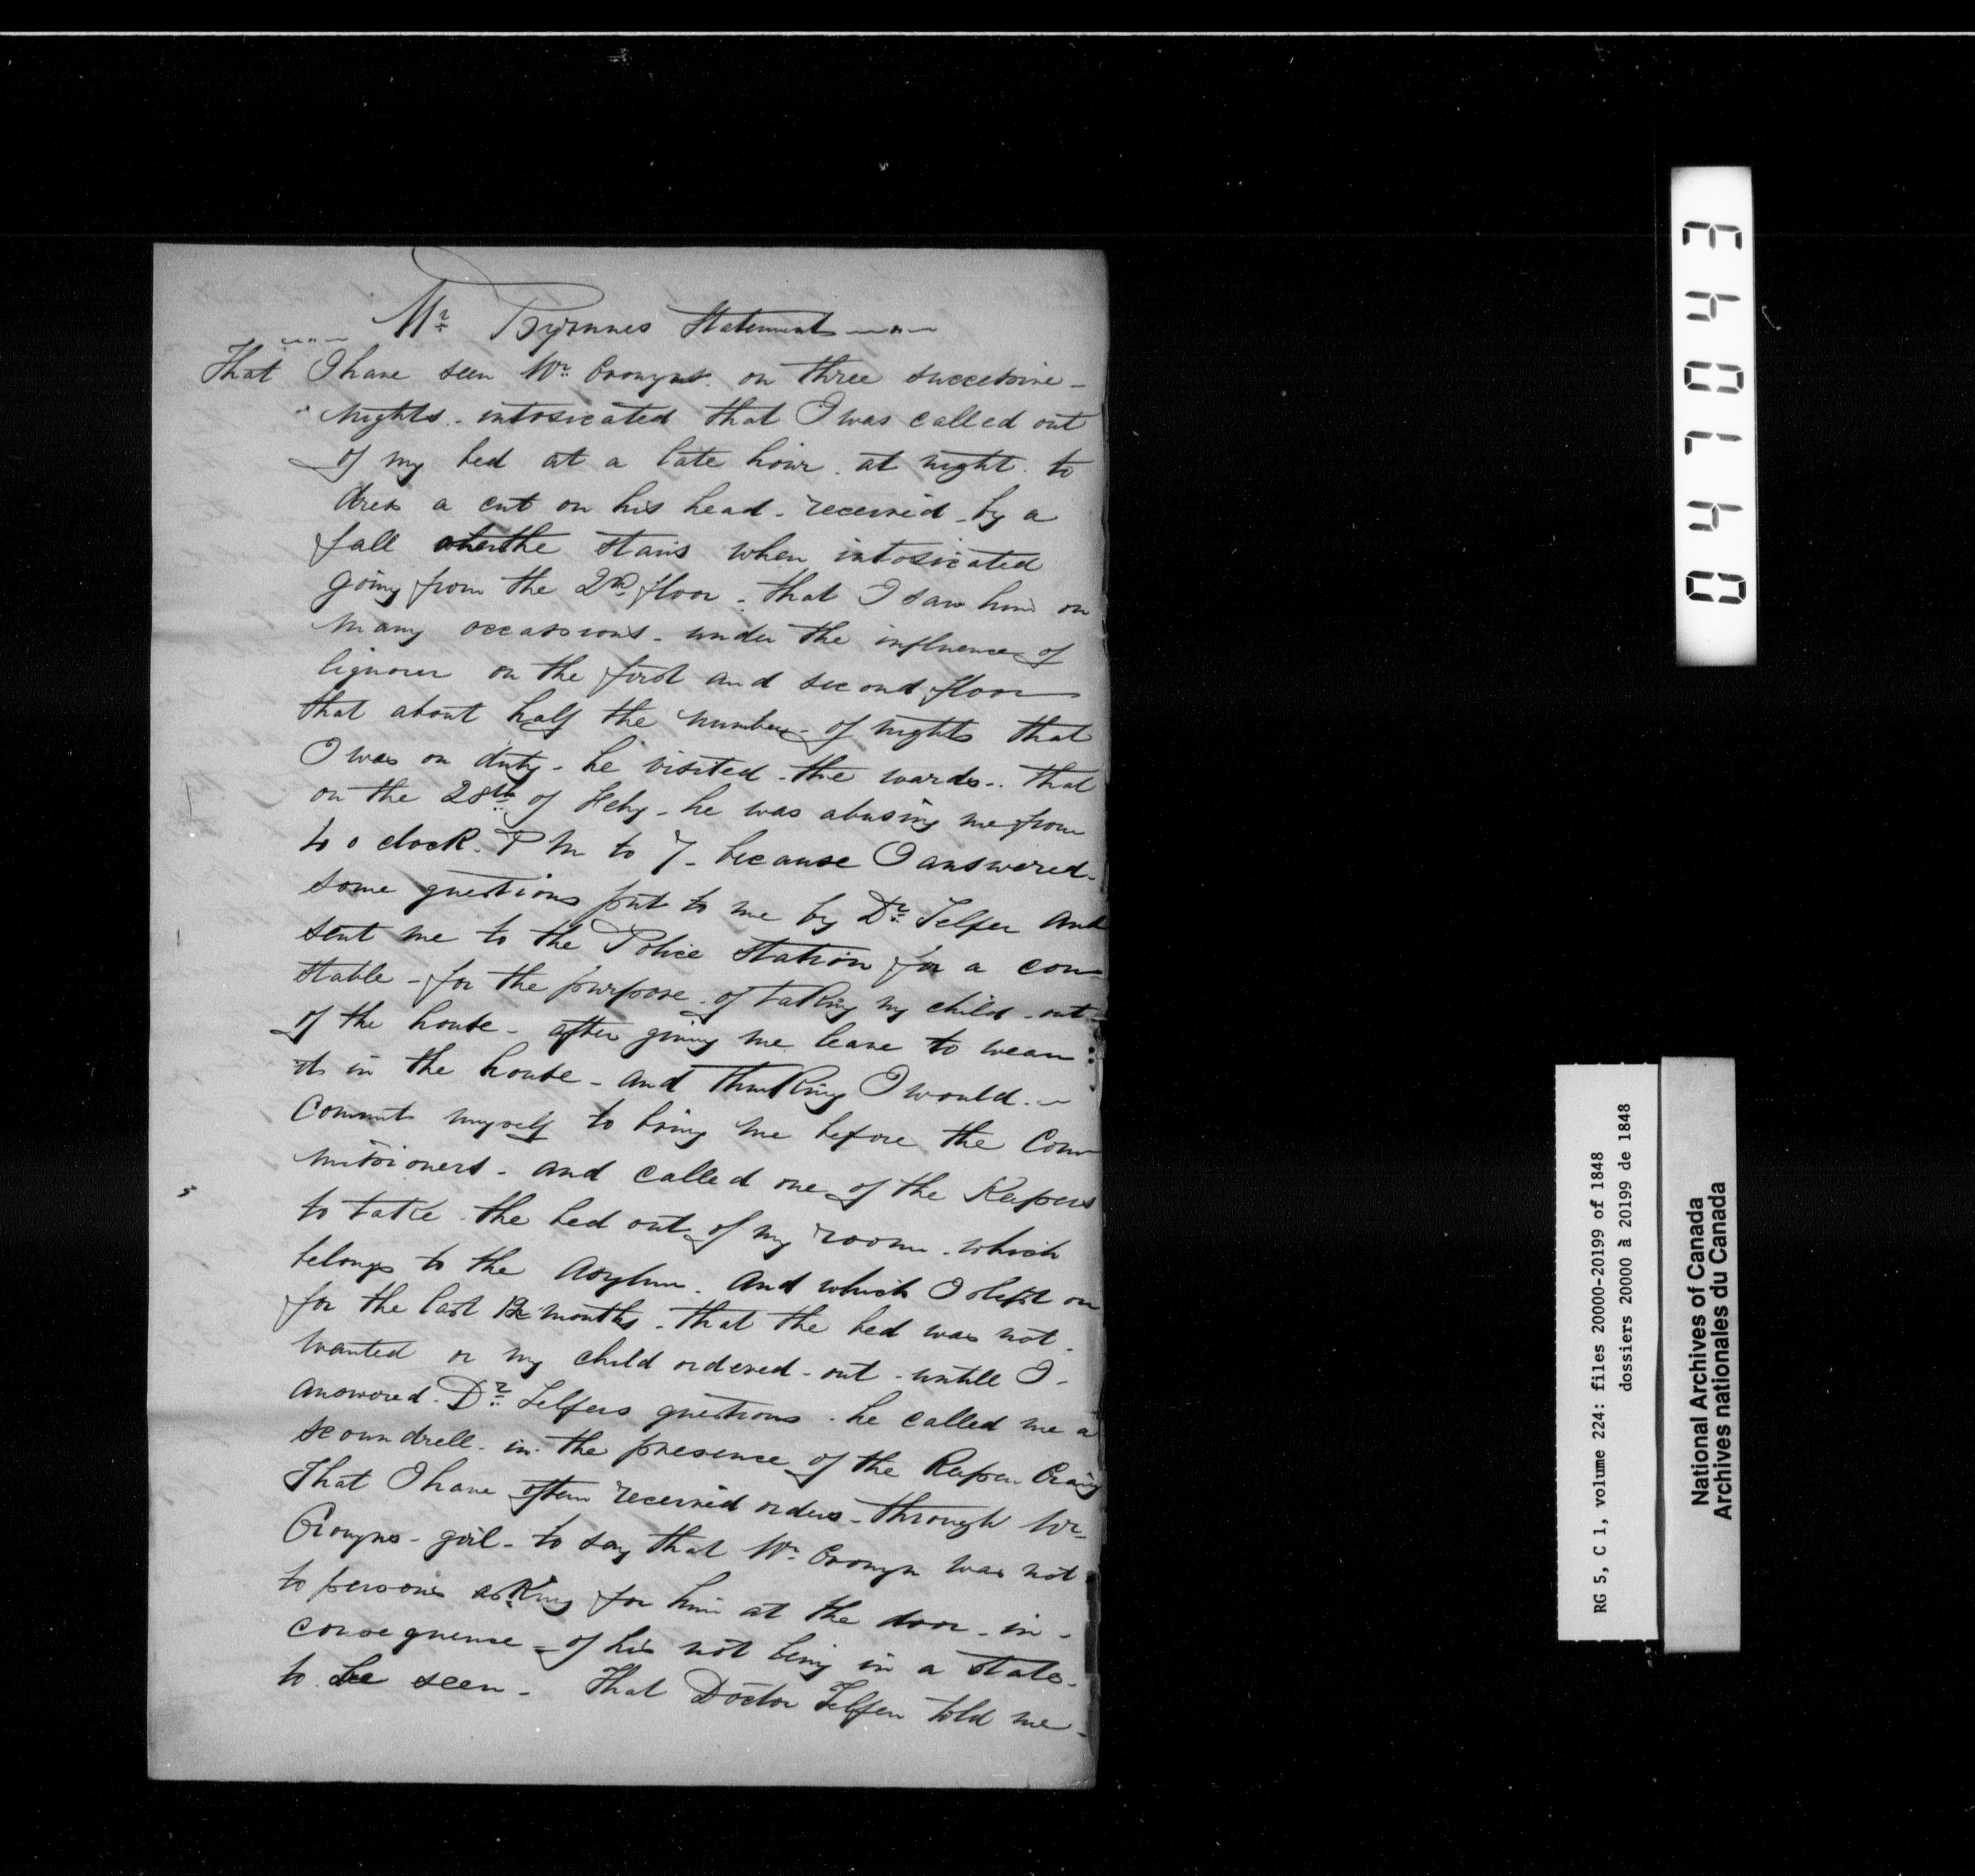 Mr Byrnnes Statement
That I have seen Mr Cronyns on three successive
nights intosicated that I was called out
of my bed at a late hour at night to
dress a cut on his head received by a
fall the stairs when intosicated
going from the 2nd floor that I saw him on
many occassions under the influence of
liquour on the first and second floor
that about half the number of nights that
I was on duty he visited the wards that
on the 28th of Feby he was abusing me from
o clock P M to 7 because I answered
some questions put to me by Dr Telfer and
sent me to the Police Station for a con
stable for the purpose of taking my child out
of the house after giving me leave to wean
it in the house and thinking I would
commit myself to bring me before the Com
missioners and called one of the Keepers
to take the bed out of my room which
belongs to the Asylum and which I slept on
for the last 12 months that the bed was not
wanted or my child ordered out untill I
answered Dr Telfers questions he called me a
scoundrell in the presence of the Keeper Craig
That I have often received orders through Mr
Cronyns girl to say that Mr Cronyn was not
to persons asking for him at the door in
consequense of his not being in a state
to be seen That Doctor Telfer told me
0470443
RG 5, C 1, volume 224: files 20000-20199 of 1848
dossiers 20000 à 20199 de 1848
National Archives of Canada
Archives nationales du Canada